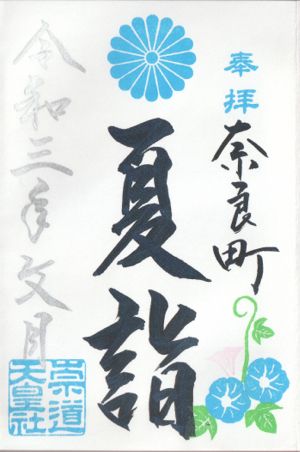 奉拝
奈良町
夏詣
令和三年文月
崇道
天皇社